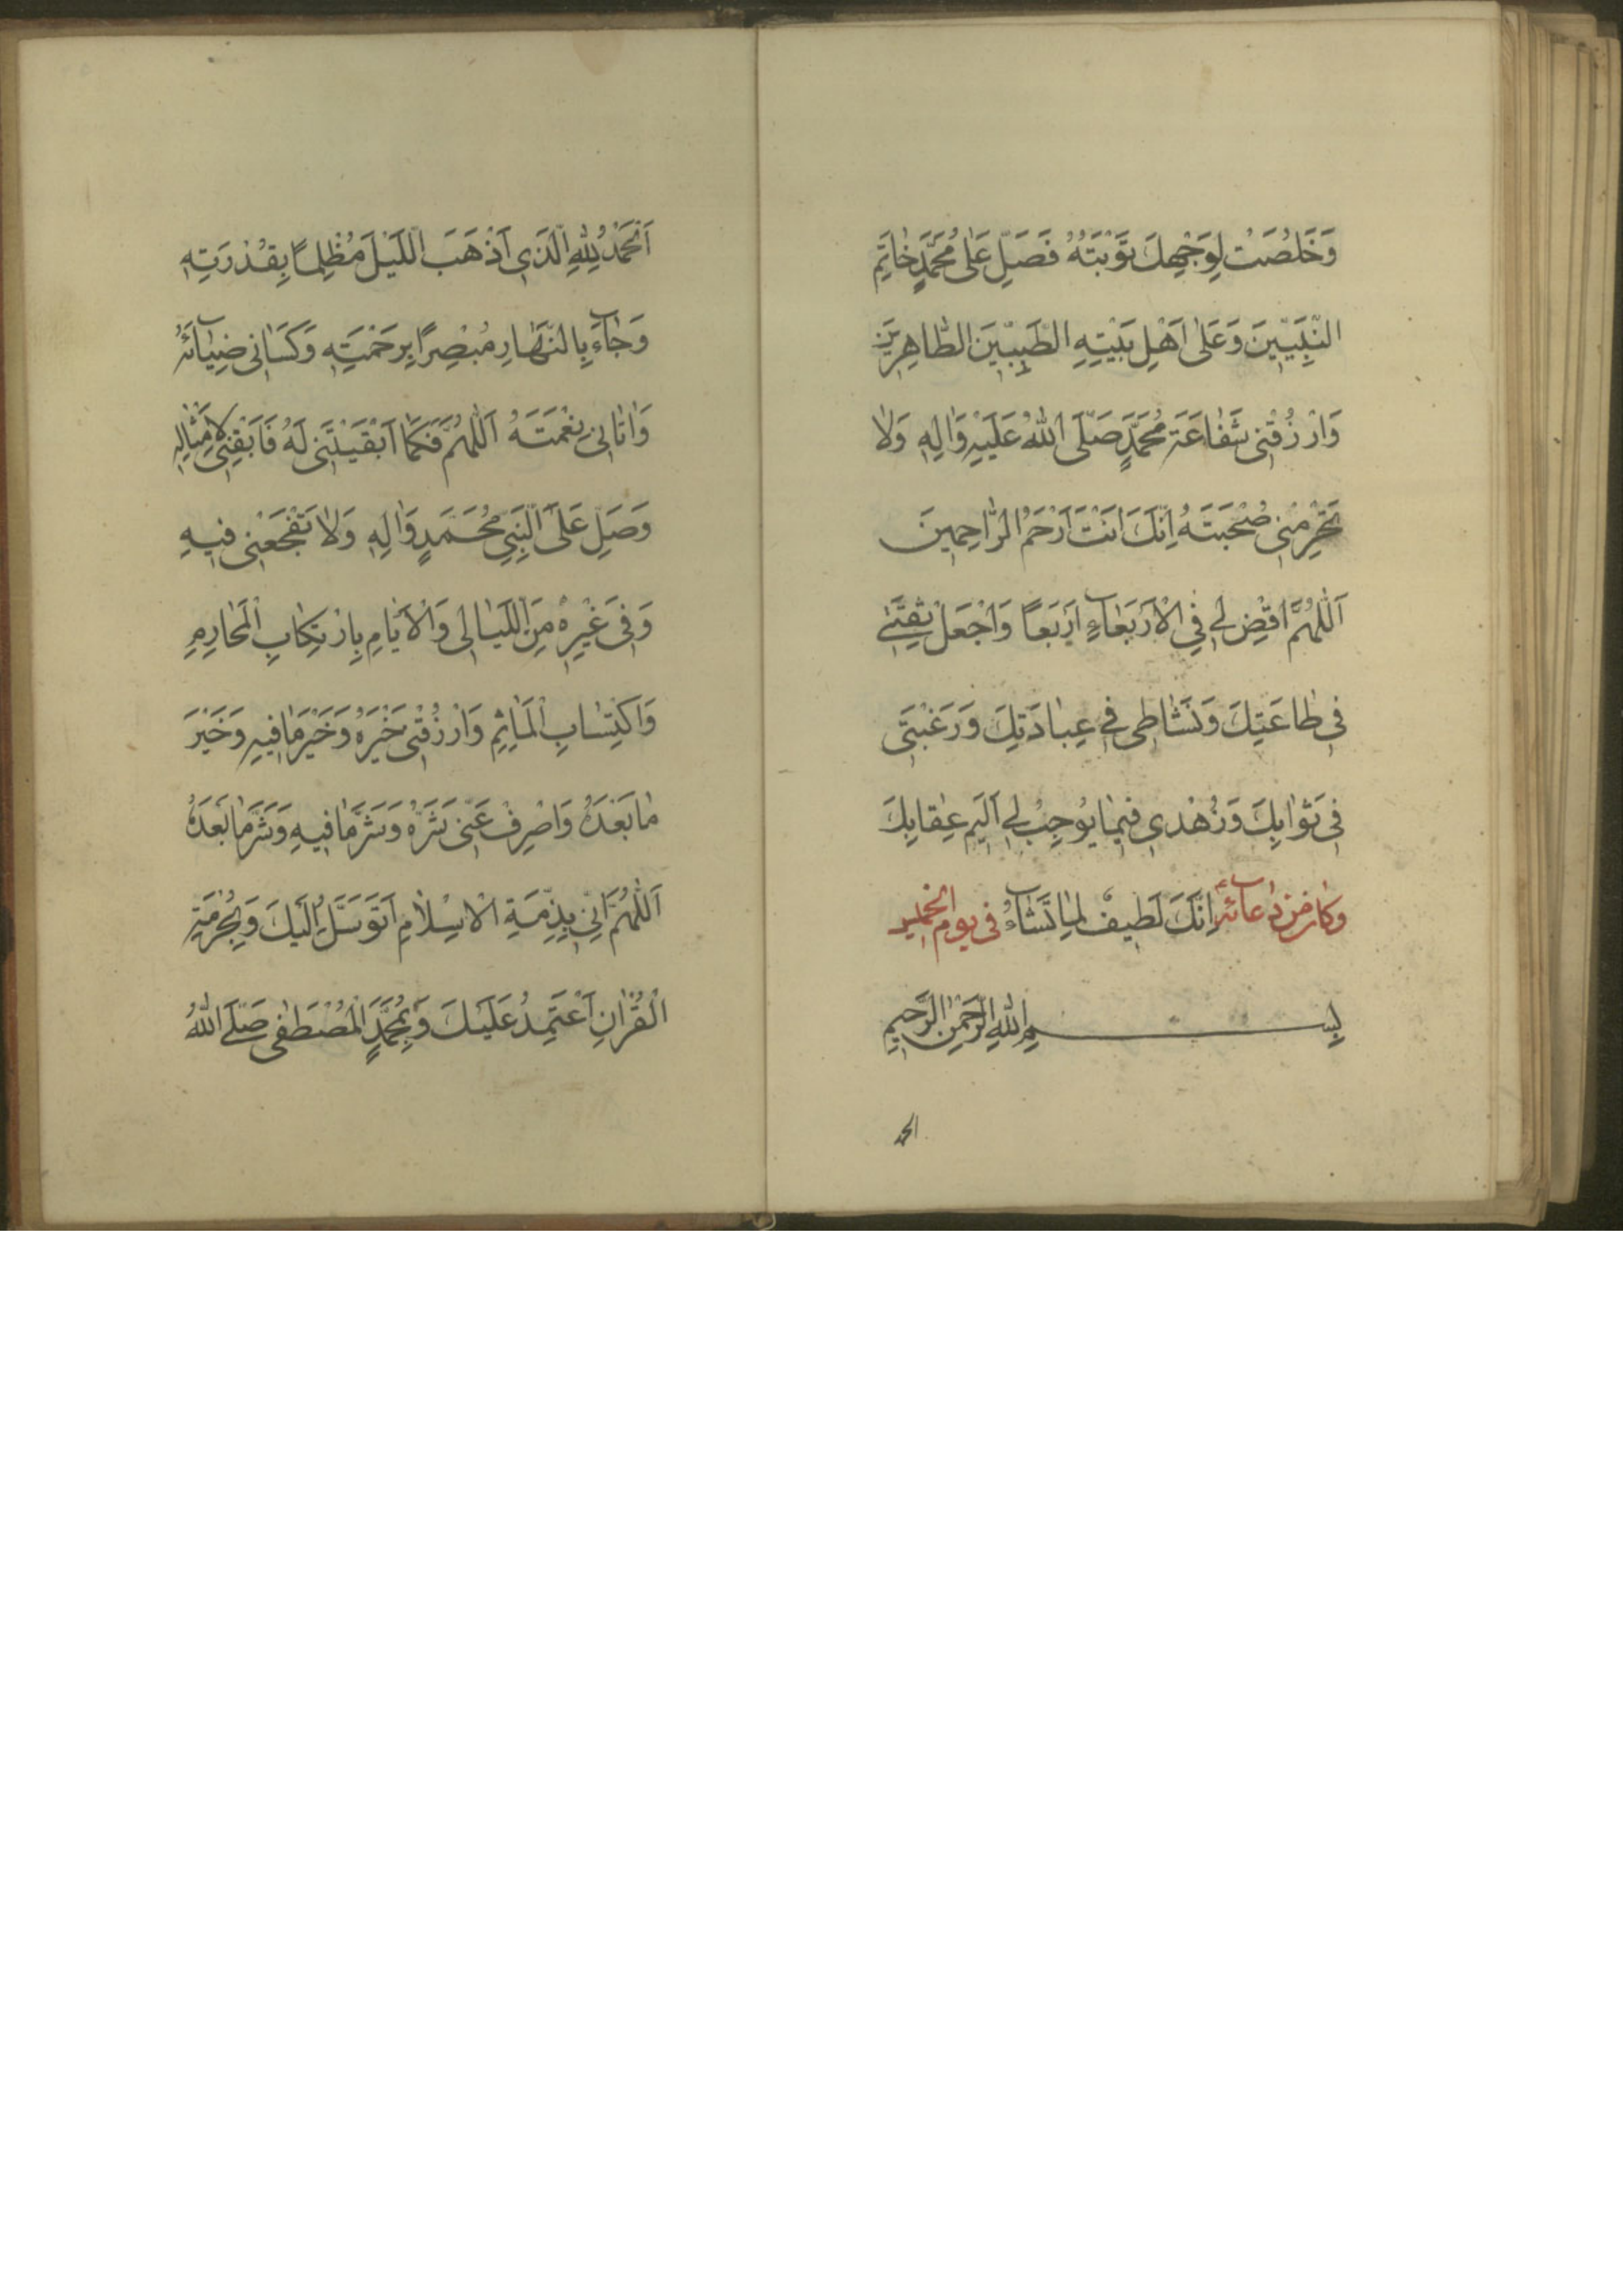 وَخَلُصَتْ لِوَجْهِكَ تَوْبَتُهُ فَصَلِّ عَلٰى مُحَمَّدٍ خٰاتَمِ
النَّبِيّينَ وَعَلٰى اَهْلِ بَيْتِهِ الطَّيِّبينَ الطّٰاهِرينَ
وَارْزُقْنى شَفٰاعَةَ مُحَمَّدٍ صَلَّى اللّٰهُ عَلَيْهِ وَاٰلِهِ وَلاٰ
تَحْرِمْنى صُحْبَتَهُ اِنَّكَ اَنْتَ اَرْحَمُ الرّٰاحِمينَ
اَللّٰهُمَّ اقْضِ لى فِى الْاَرْبَعٰاءِ اَرْبَعًا وَاجْعَلْ قُوَّتى
فى طٰاعَتِكَ وَنَشٰاطى فى عِبٰادَتِكَ وَرَغْبَتى
فى ثَوٰابِكَ وَزُهْدى فيمٰا يُوجِبُ لى اَليمَ عِقٰابِكَ
اِنَّكَ لَطيفٌ لِمٰا تَشٰاءُ وكان من دعائه فى يوم الخميس
بِسْمِ اللّٰهِ الرَّحْمٰنِ الرَّحيمِ
الحمد
اَلْحَمْدُ لِلّٰهِ الَّذى اَذْهَبَ اللَّيْلَ مُظْلِمًا بِقُدْرَتِهِ
وَجٰاءَ بِالنَّهٰارِ مُبْصِرًا بِرَحْمَتِهِ وَكَسٰانى ضِيٰائَهُ
وَاٰتٰانى نِعْمَتَهُ اَللّٰهُمَّ فَكَمٰا اَبْقَيْتَنى لَهُ فَاَبْقِنى لِاَمْثٰالِهِ
وَصَلِّ عَلَى النَّبِىِّ مُحَمَّدٍ وَاٰلِهِ وَلاٰ تَفْجَعْنى فيهِ
وَفى غَيْرِهِ مِنَ اللَّيٰالى وَالْاَيّٰامِ بِارْتِكٰابِ الْمَحٰارِمِ
وَاكْتِسٰابِ الْمَاٰثِمِ وَارْزُقْنى خَيْرَهُ وَخَيْرَ مٰا فيهِ وَخَيْرَ
مٰا بَعْدَهُ وَاصْرِفْ عَنّى شَرَّهُ وَشَرَّ مٰا فيهِ وَشَرَّ مٰا بَعْدَهُ
اَللّٰهُمَّ اِنّى بِذِمَّةِ الْاِسْلاٰمِ اَتَوَسَّلُ اِلَيْكَ وَبِحُرْمَةِ
الْقُرْاٰنِ اَعْتَمِدُ عَلَيْكَ وَبِمُحَمَّدٍ الْمُصْطَفٰى صَلَّى اللّٰهُ